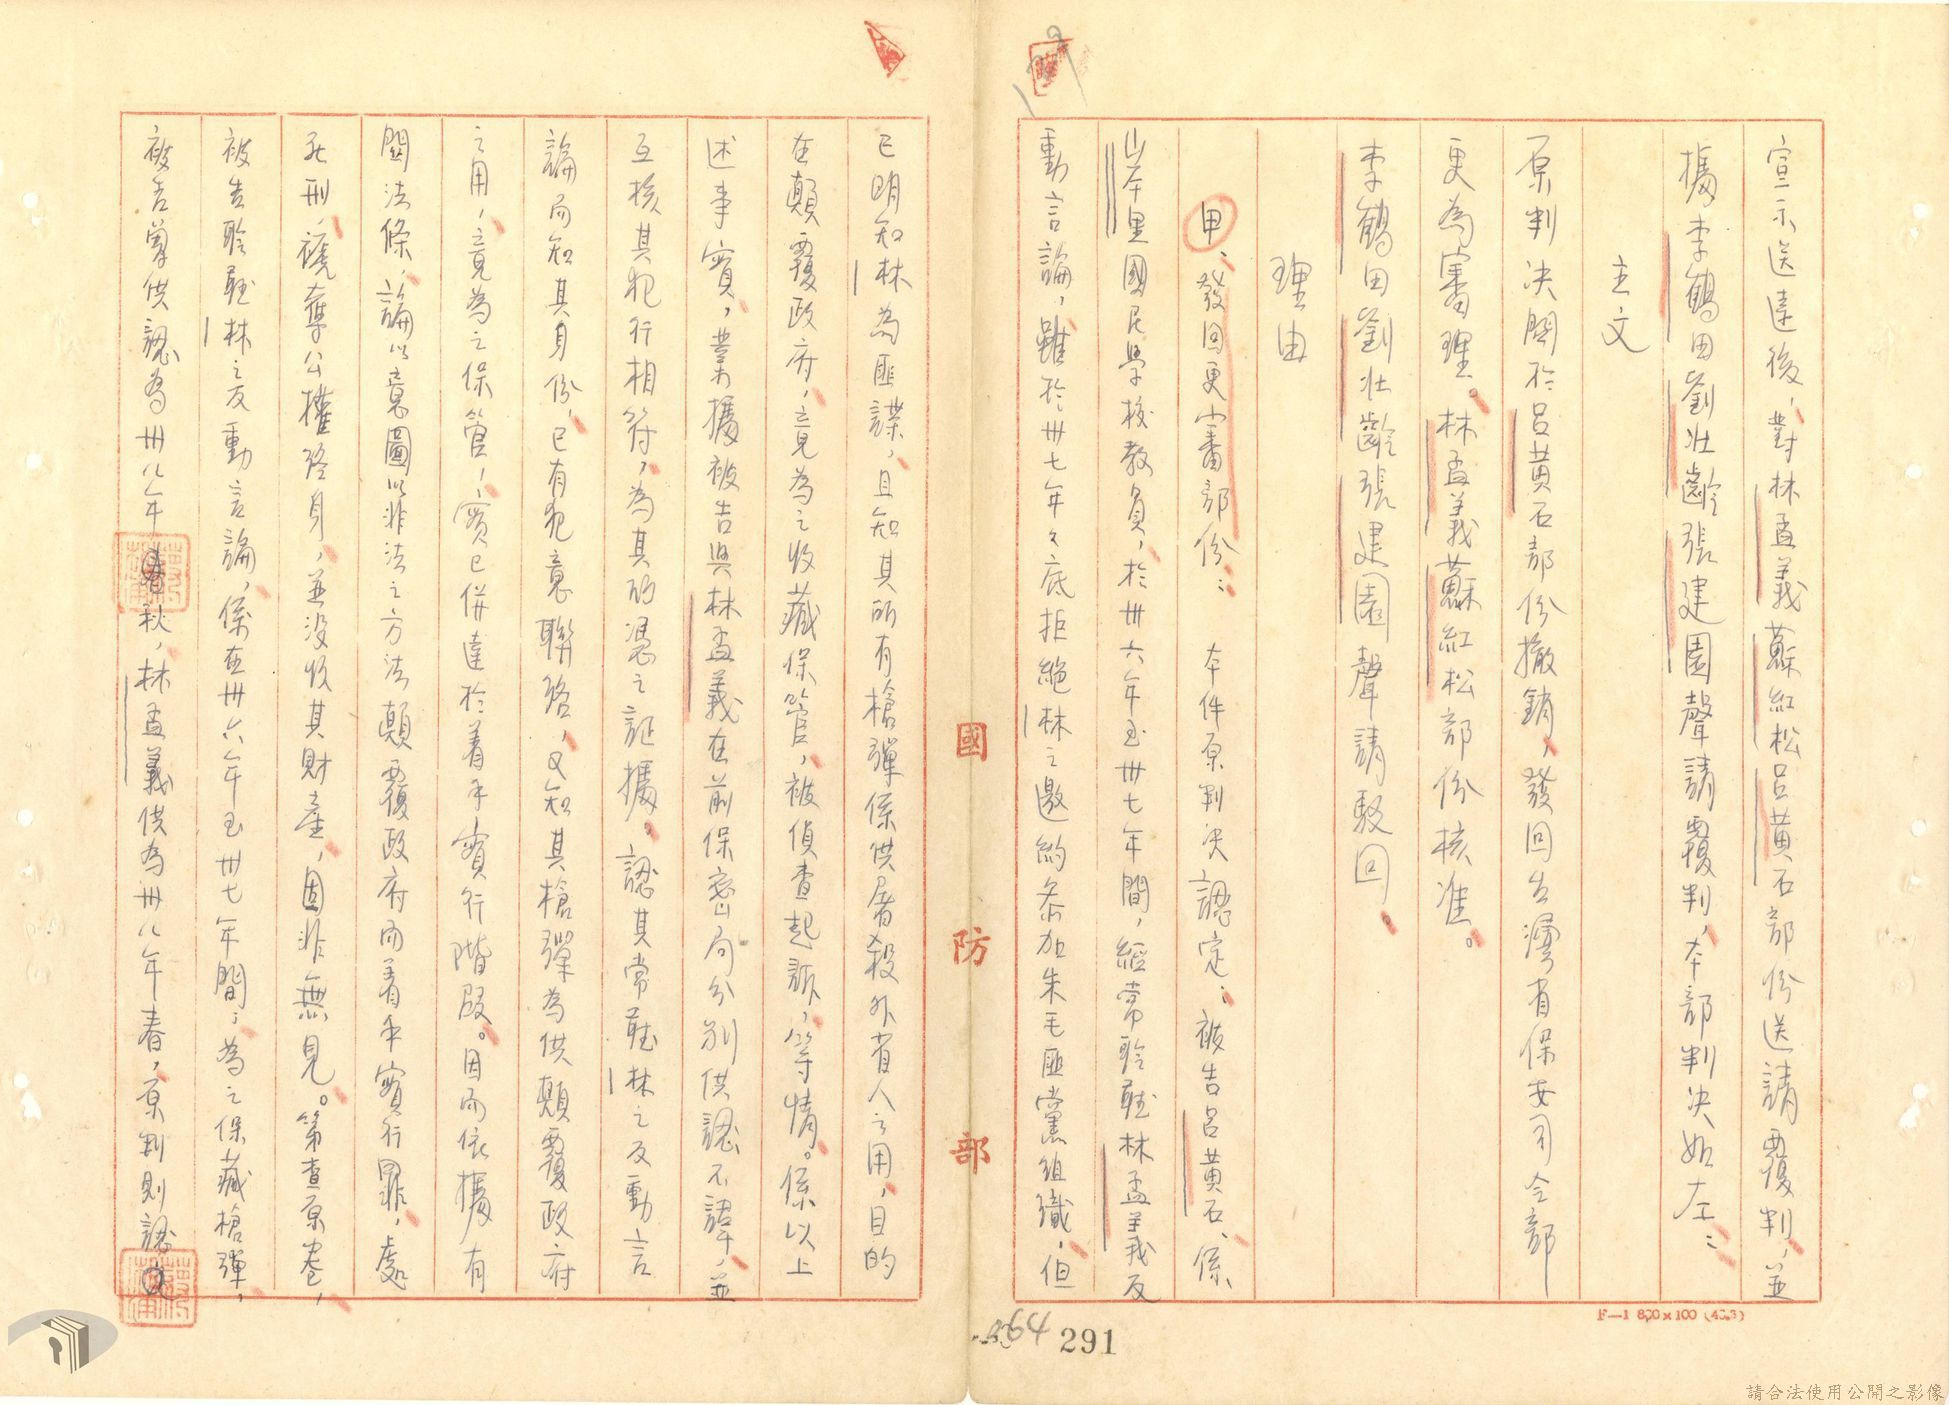 宣示送達後，對林孟義蘇紅松呂黃石部份送請覆判，並
據李鶴田劉壯齡張建園聲請覆判，本部判決如左：
主文
原判決關於呂黃石部份撤銷，發回台灣省保安司令部
更為審理。林孟義蘇紅松部份核准。
李鶴田劉壯齡張建園聲請駁回。
理由
甲、發回更審部份：本件原判決認定：被告呂黃石、係
山本里國民學校教員，於卅六年至卅七年間，經常聆聽林孟義反
動言論，雖於卅七年年底拒絕林之邀約參加朱毛匪黨組織，但
已明知林為匪諜，且知其所有槍彈係供屠殺外省人之用，目的
在顛覆政府，竟為之收藏保管，被偵查起訴，等情。係以上
述事實，業據被告與林孟義在前保密局分別供認不諱，並
互核其犯行相符，為其所憑之証據。認其常聽林之反動言
論而知其身份，已有犯意聯絡，又知其槍彈為供顛覆政府
之用，竟為之保管，實已併達於着手實行階段。因而依據有
關法條，論以意圖以非法之方法顛覆政府而着手實行罪，處
死刑，褫奪公權終身，並沒收其財產，固非無見。第查原卷，
被告聆聽林之反動言論，係在卅六年至卅七年間，為之保藏槍彈，
被告曾供認為卅八年春秋，林孟義供為卅八年春，原判則認
國防部
F—1 800×100
564
291
請合法使用公開之影像